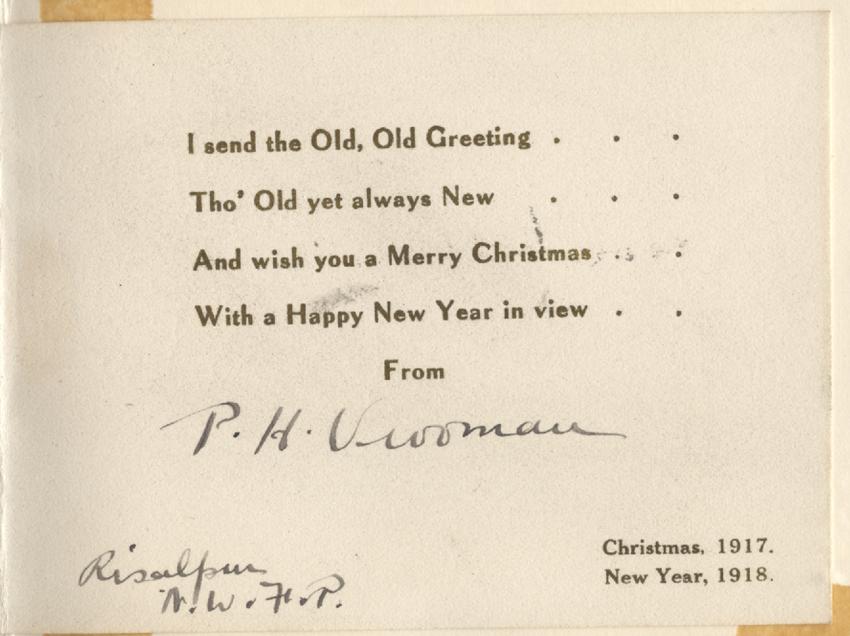 I send the Old, Old Greeting . . .
Tho' Old yet always New . . .
And wish you a Merry Christmas . .
With a Happy New Year in view . .
From
P. H. Vrooman
Risalpur
N.W.F.P.
Christmas, 1917.
New Year, 1918.